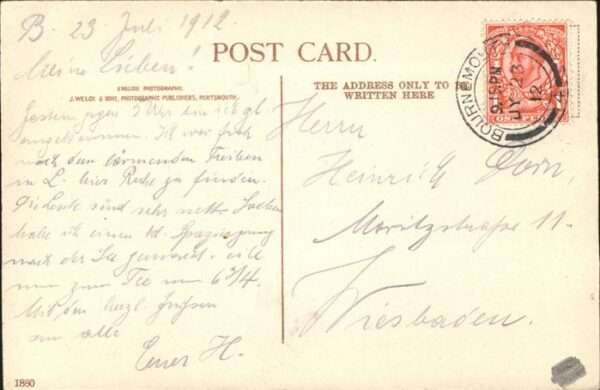 B. 23 Juli 1912.
Meine Lieben!
POST CARD.
ENGLISH PHOTOGRAPHIC
J. WELCH & SONS, PHOTOGRAPHIC PUBLISHERS, PORTSMOUTH.
THE ADDRESS ONLY TO BE
WRITTEN HERE
BOURNEMOUTH
9.15PM
JY 23
12
Gestern gegen 5 Uhr bin ich
angekommen. Ich war froh
nach dem lärmenden Treiben
in L. hier Ruhe zu finden.
Die Leute sind sehr nett. Soeben
habe ich einen kl. Spaziergang
nach der See gemacht. +
nun zum Tee um 6 3/4.
Mit den herzl. Grüßen
an alle
Euer H.
Herrn
Heinrich Dorn,
Moritzstraße 11.
Wiesbaden.
1880